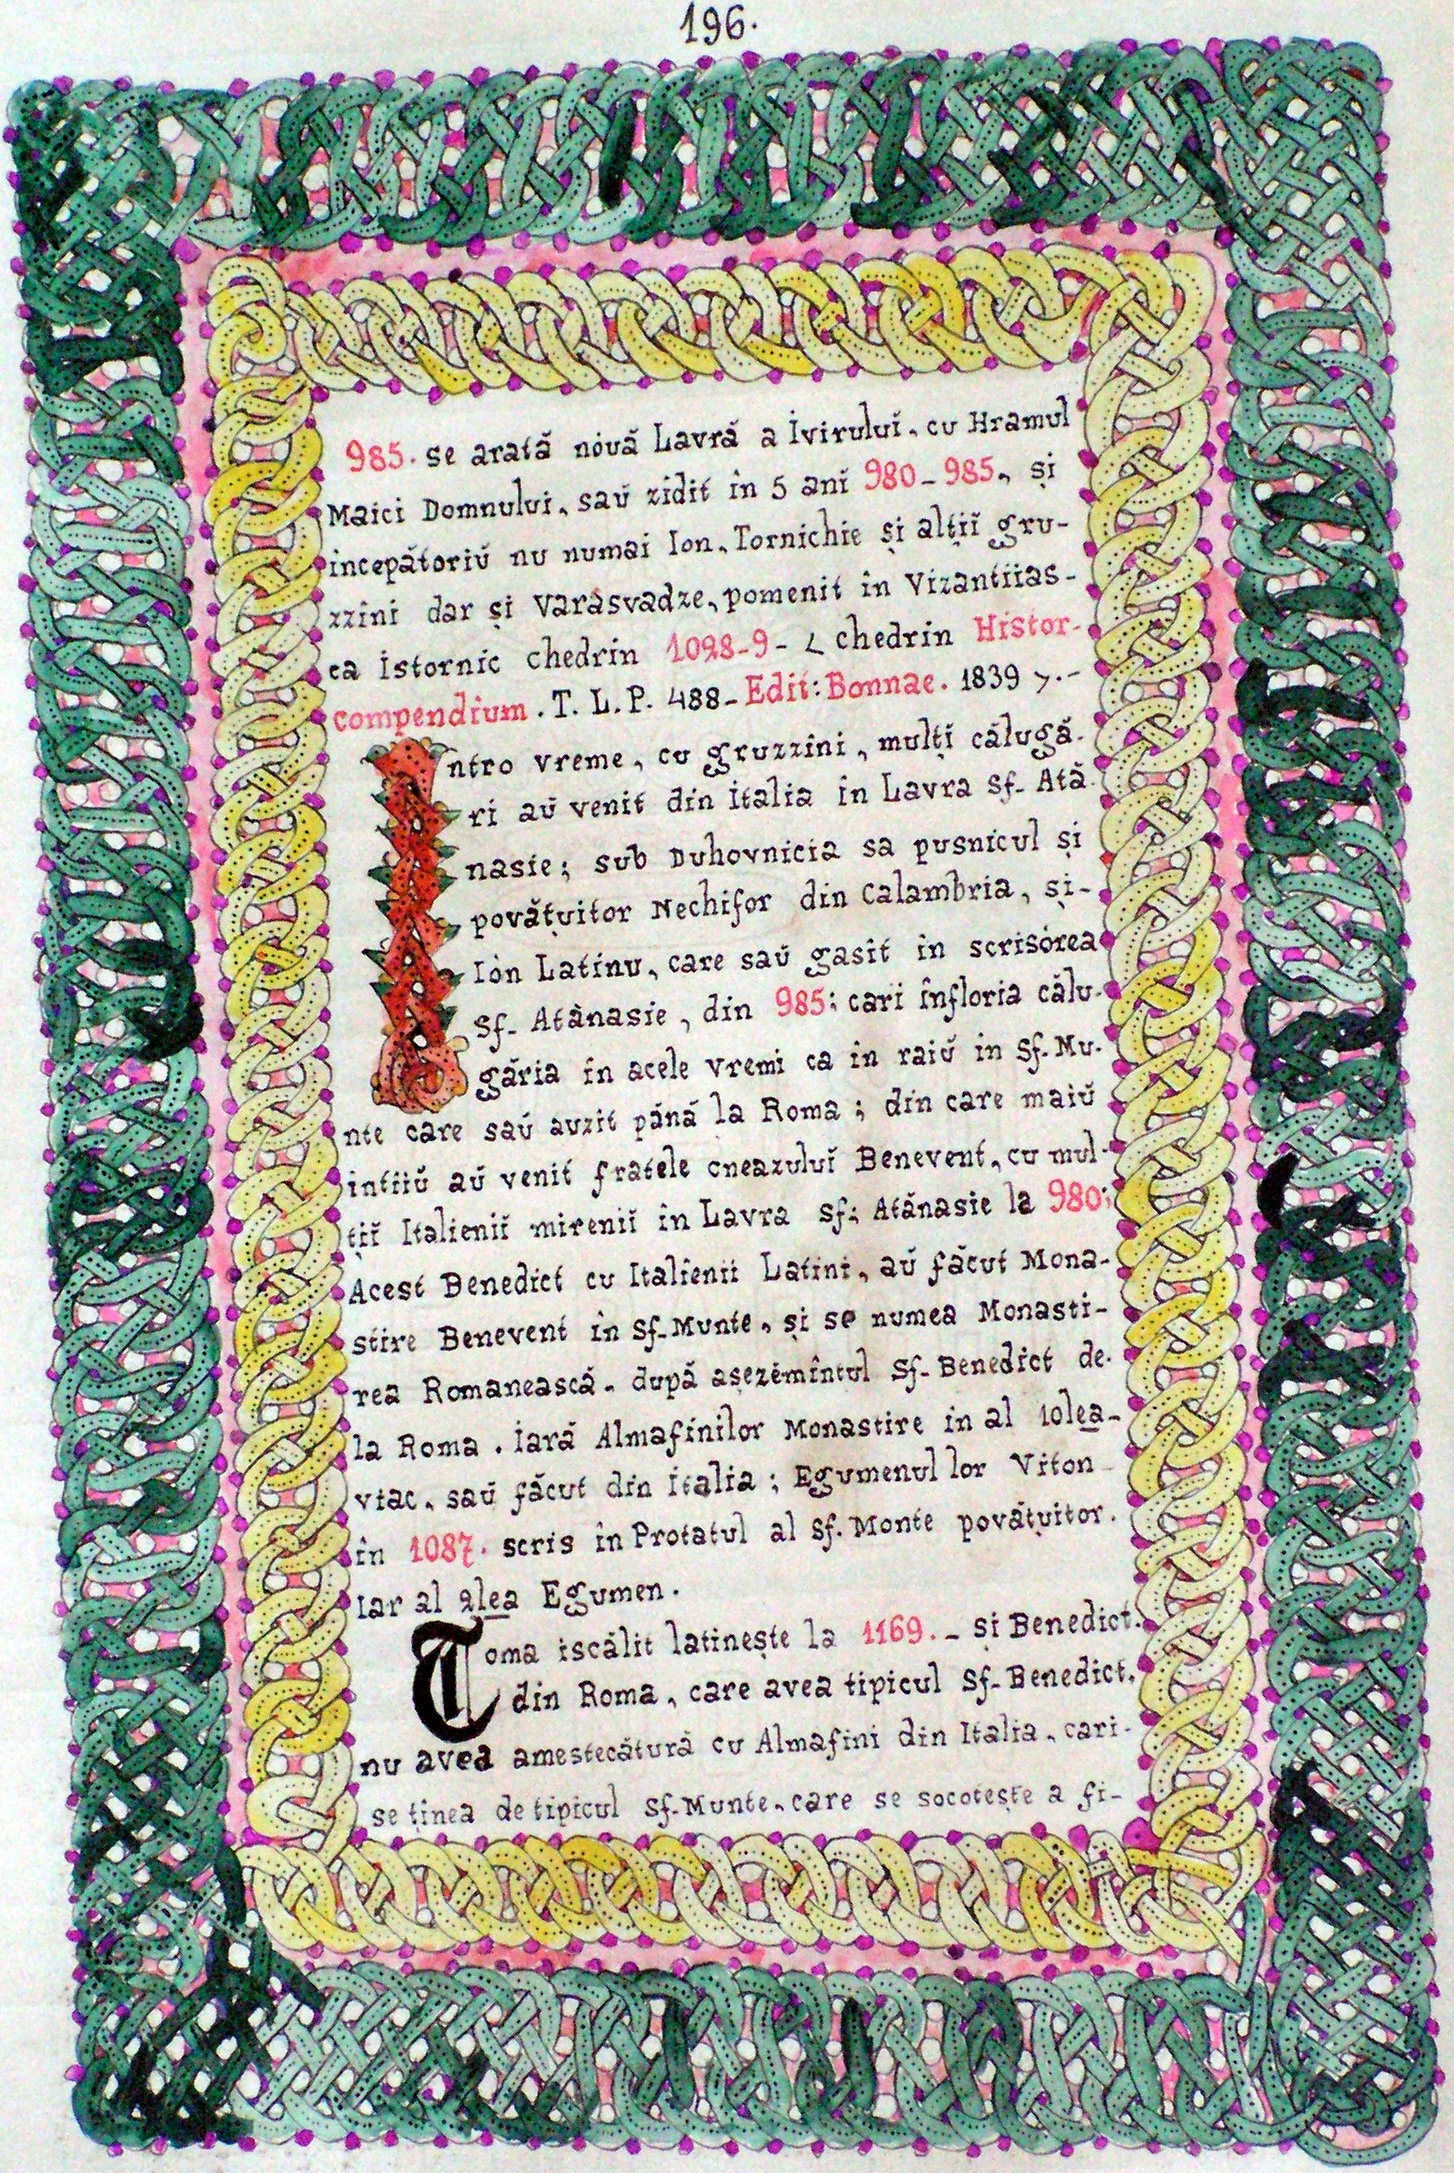 196.
985. se arată nouă Lavră a Ivirului. cu Hramul
Maici Domnului. saŭ zidit în 5 ani 980-985., și
incepătoriŭ nu numai Ion. Tornichie și alțiĭ gru-
zzîni dar și Varasvadze, pomenit în Vizantiias-
ca istornic chedrin 1028-9- < chedrin Histor-
compendium. T. L. P. 488-Edit: Bonnae. 1839 >.-
Intro vreme, cu gruzzîni, mulți călugă-
ri aŭ venit din italia în Lavra Sf. Ată
nasie; sub Duhovnicia sa pusnicul și
povățuitor Nechifor din Calambria, și-
Iòn Latinu, care saŭ gasit in scrisórea
Sf. Atânasie, din 985; cari înfloria călu-
găria în acele vremi ca în raiŭ in Sf. Mu-
nte care saŭ auzit până la Roma; din care maiŭ
intiiŭ aŭ venit fratele cneazuluĭ Benevent, cu mul-
țiĭ Italieniĭ mireniĭ în Lavra Sf: Atănasie la 980;
Acest Benedict cu Italienii Latini, aŭ făcut Mona-
stire Benevent în Sf. Munte, și se numea Monasti-
rea Romanească. după așezémîntul Sf. Benedict de-
la Roma. iară Almafinilor Monastire in al 10lea-
viac, saŭ făcut din italia; Egumenul lor Viton
în 1087. scris în Protatul al Sf. Monte povățuitor.
Iar al 2lea Egumen.
Toma iscălit latinește la 1169.- și Benedict.
din Roma, care avea tipicul Sf. Benedict.
nu avea amestecătură cu Almafini din Italia. cari-
se ținea de tipicul Sf. Munte. care se socotește a fi-